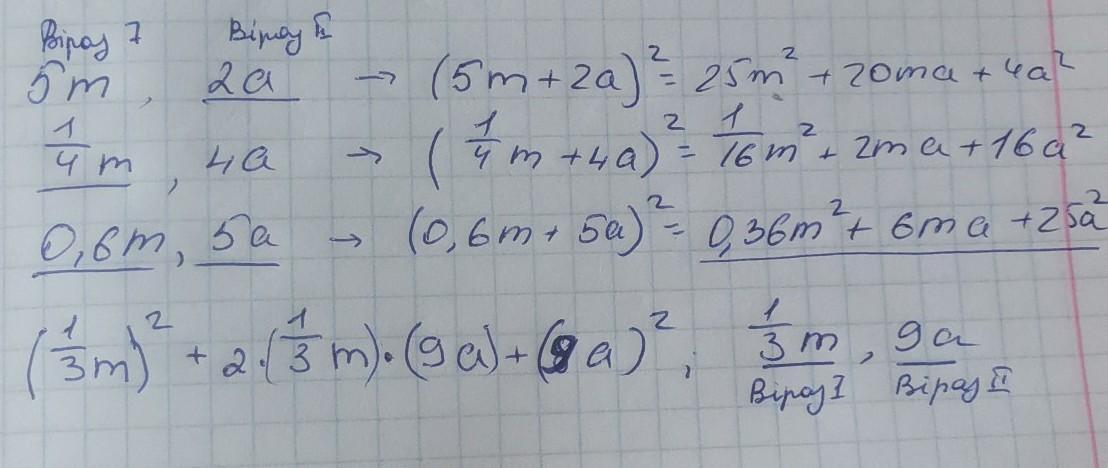 Вираз I Вираз II
5m, 2a → (5m + 2a)² = 25m² + 20ma + 4a²
1/4 m, 4a → (1/4 m + 4a)² = 1/16 m² + 2ma + 16a²
0,6m, 5a → (0,6m + 5a)² = 0,36m² + 6ma + 25a²
(1/3 m)² + 2·(1/3 m)·(9a) + (9a)²; 1/3 m, 9a
Вираз I Вираз II